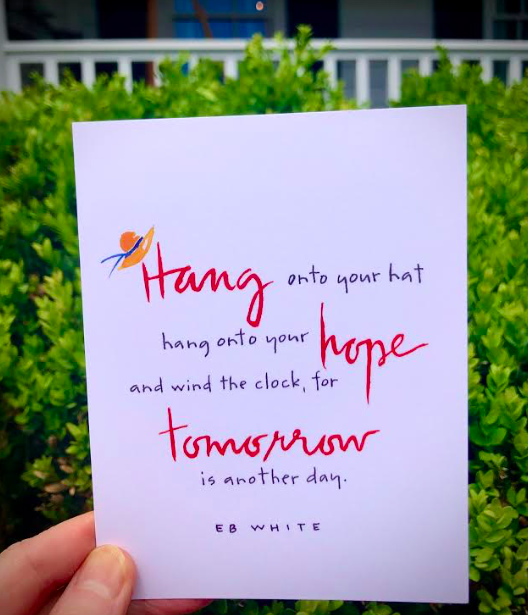 Hang onto your hat
hang onto your hope
and wind the clock, for
tomorrow
is another day.
EB WHITE